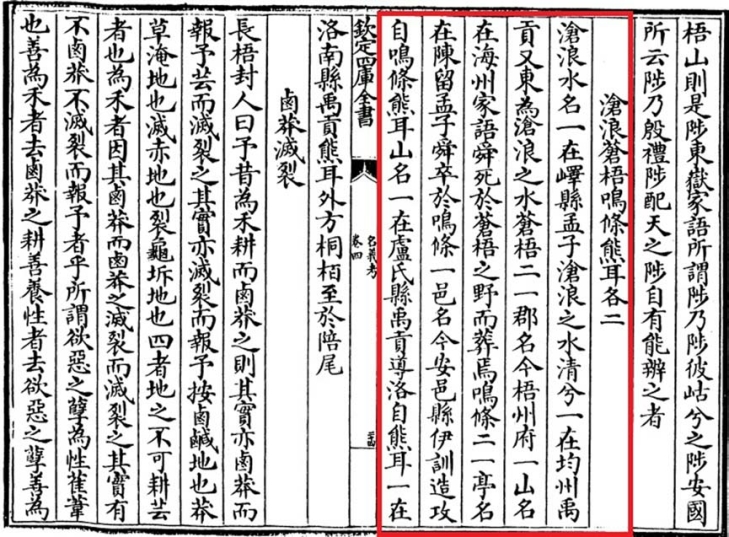 梧山則是陟東嶽家語所謂陟乃陟彼岵兮之陟安國
所云陟乃殷禮陟配天之陟自有能辨之者
滄浪蒼梧鳴條熊耳各二
滄浪水名一在嶧縣孟子滄浪之水清兮一在均州禹
貢又東為滄浪之水蒼梧二一郡名今梧州府一山名
在海州家語舜死於蒼梧之野而葬焉鳴條二一亭名
在陳留孟子舜卒於鳴條一邑名今安邑縣伊訓造攻
自鳴條熊耳山名一在盧氏縣禹貢導洛自熊耳一在
欽定四庫全書
名義考
卷四
洛南縣禹貢熊耳外方桐栢至於陪尾
鹵莽滅裂
長梧封人曰予昔為禾耕而鹵莽之則其實亦鹵莽而
報予芸而滅裂之其實亦滅裂而報予按鹵鹹地也莽
草淹地也滅赤地也裂龜坼地也四者地之不可耕芸
者也為禾者因其鹵莽而鹵莽之滅裂而滅裂之其實有
不鹵莽不滅裂而報予者乎所謂欲惡之孽為性萑葦
也善為禾者去鹵莽之耕善養性者去欲惡之孽善為